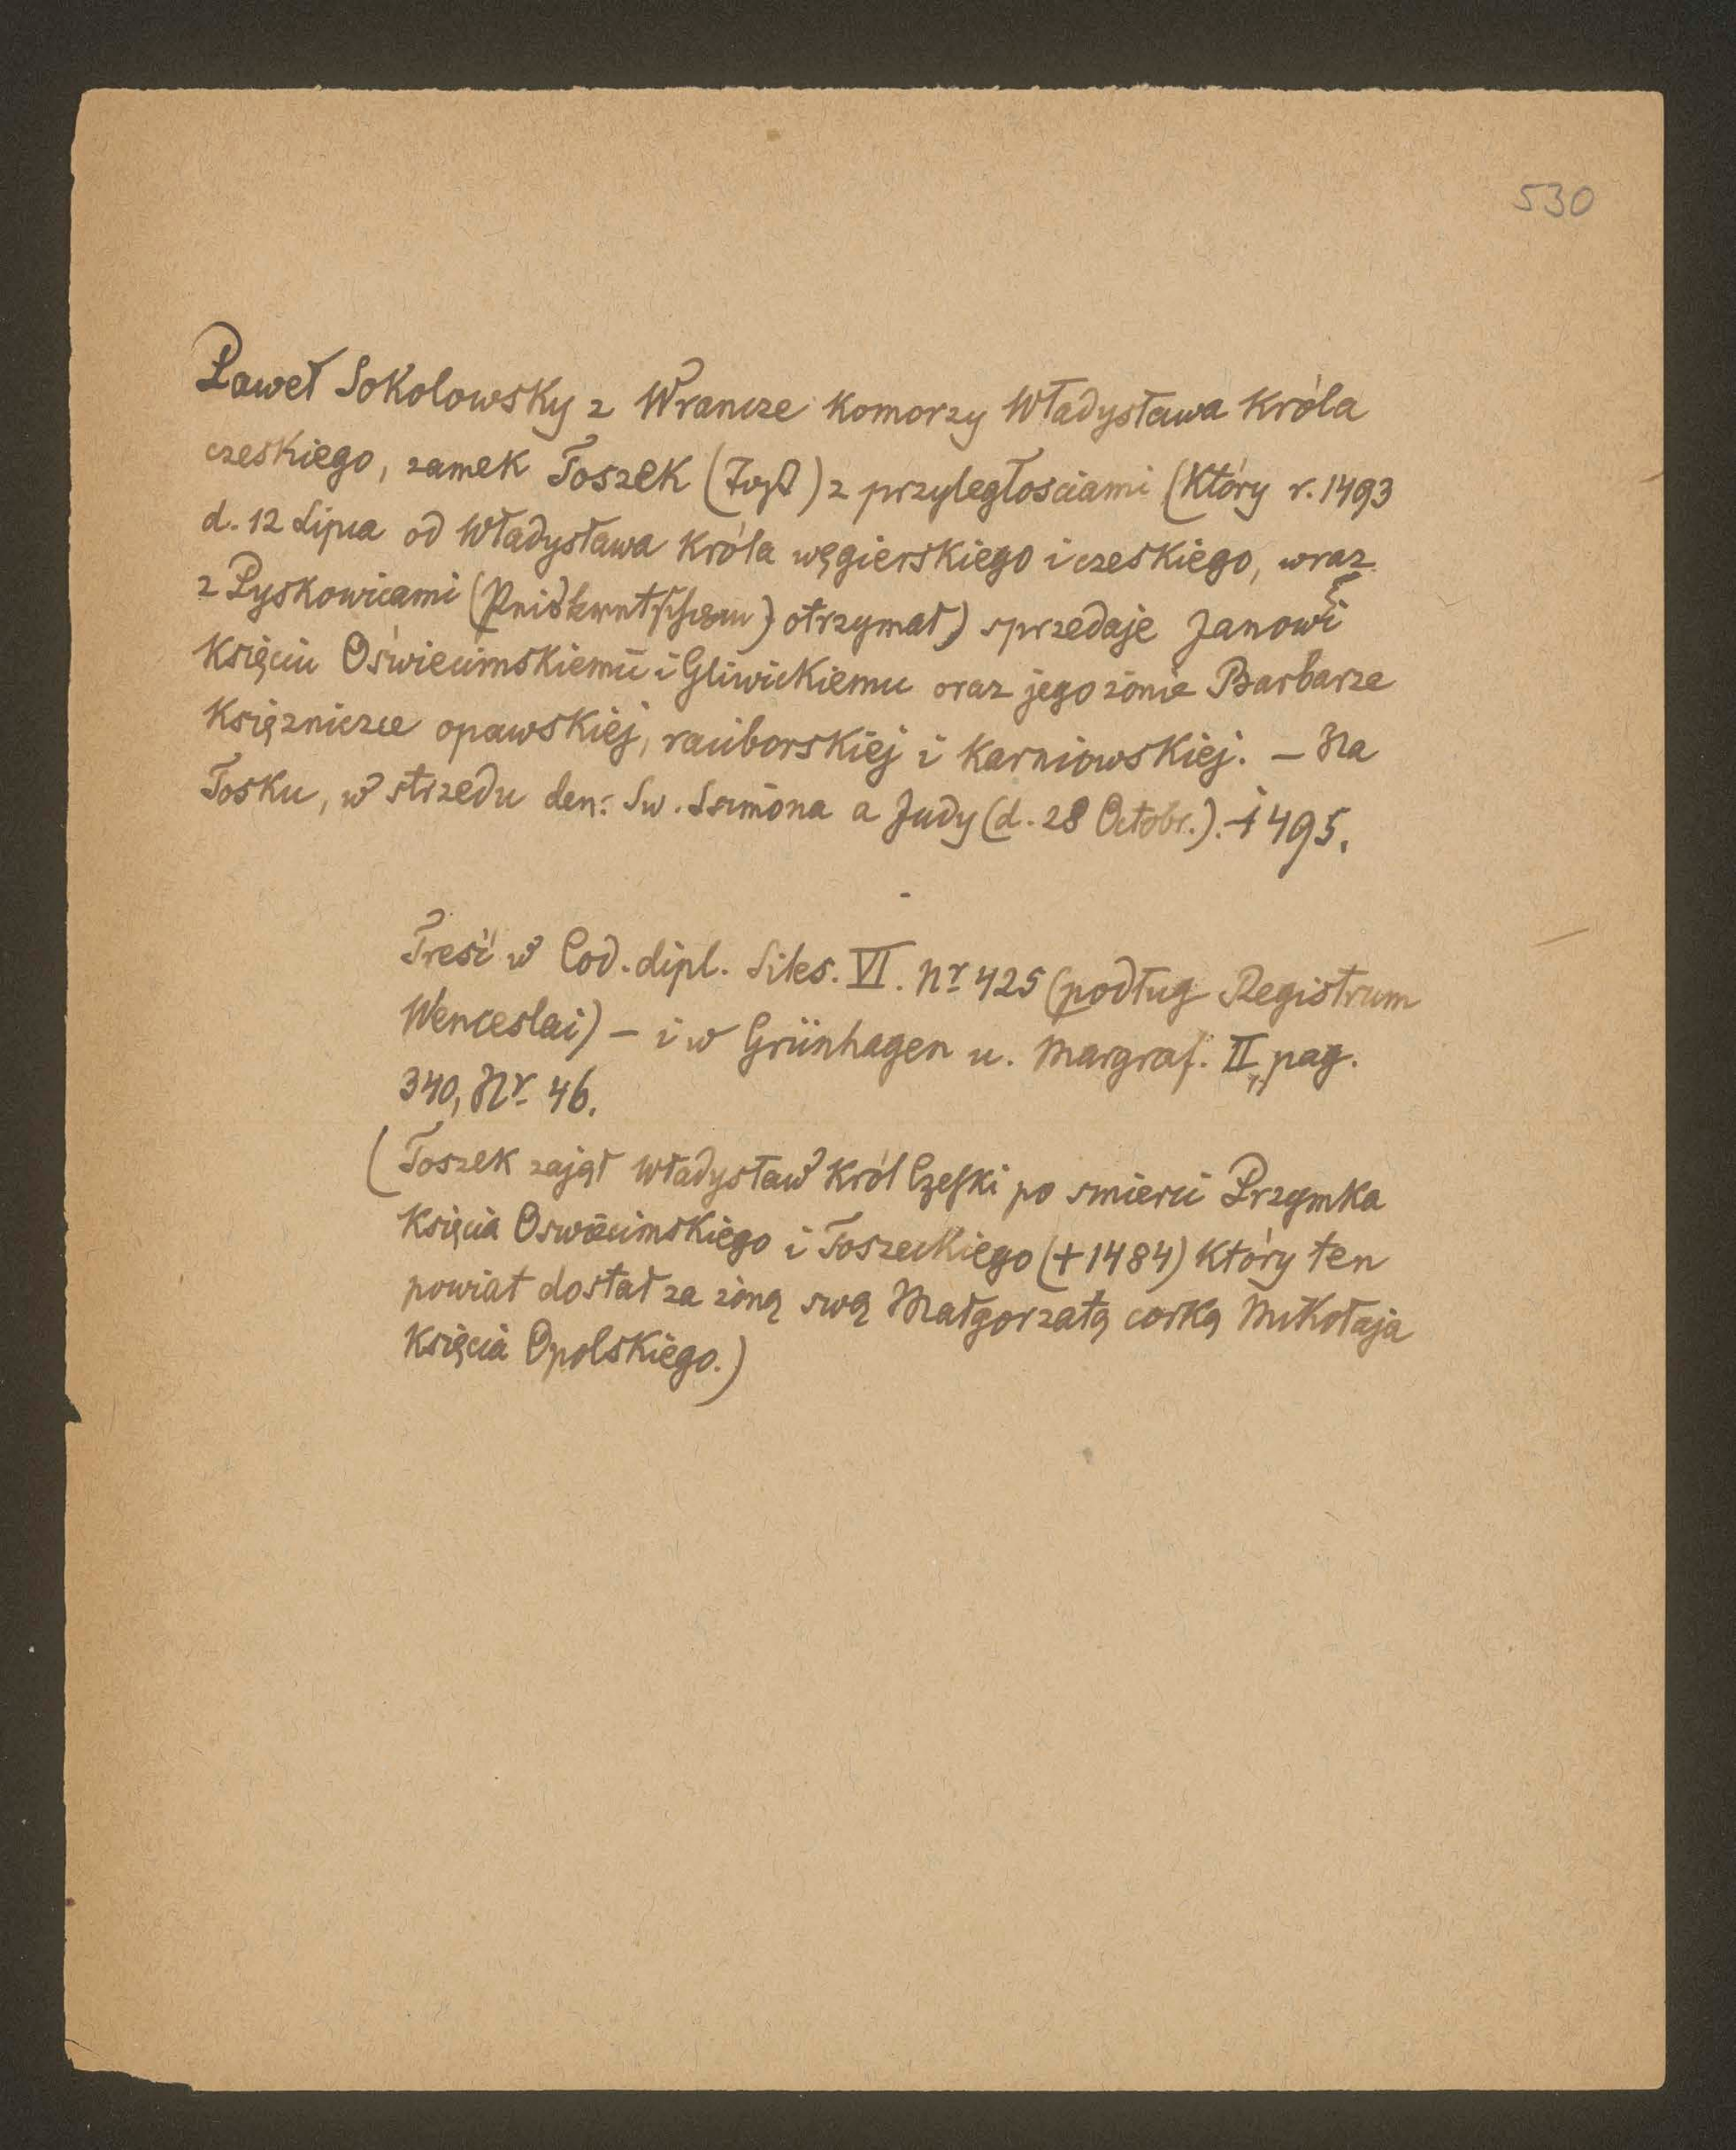 530
Paweł Sokolowsky z Wrancze Komorzy Władysława Króla
czeskiego, zamek Toszek (Tost) z przyległosciami (Który r. 1493
d. 12 Lipca od Władysława Króla węgierskiego i czeskiego, wraz
z Pyskowicami () otrzymał) sprzedaje Janowi
Księciu Oświecimskiemu i Gliwickiemu oraz jego żonie Barbarze
Księzniczce opawskiej, raciborskiej i Karniowskiej. – Na
Tosku, w strzedu den: Sw. Ssimona a Judy (d. 28 Octobr.). 1495.
Treść w Cod. dipl. Siles. VI. Nr 425 (podług Registrum
Wenceslai) – i w Grünhagen u. Margraf. II, pag.
340, Nr 46.
(Toszek zajął Władysław Król Czeski po smierci Przymka
Księcia Oswiecimskiego i Toszeckiego (+1484) Który ten
powiat dostał za żoną swą Małgorzatą corką Mikołaja
Księcia Opolskiego.)